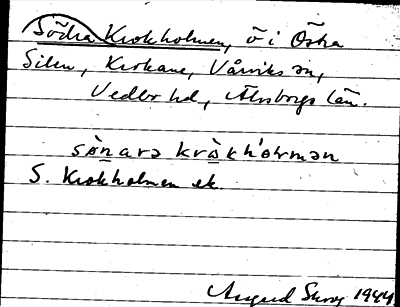 Södra Krokholmen, ö i Östra
Silen, Krokane, Vårviks sn,
Vedbo hd, Älvsborgs län.
sɵnara krɑ̀khɵlmən
S. Krokholmen ek.
1944